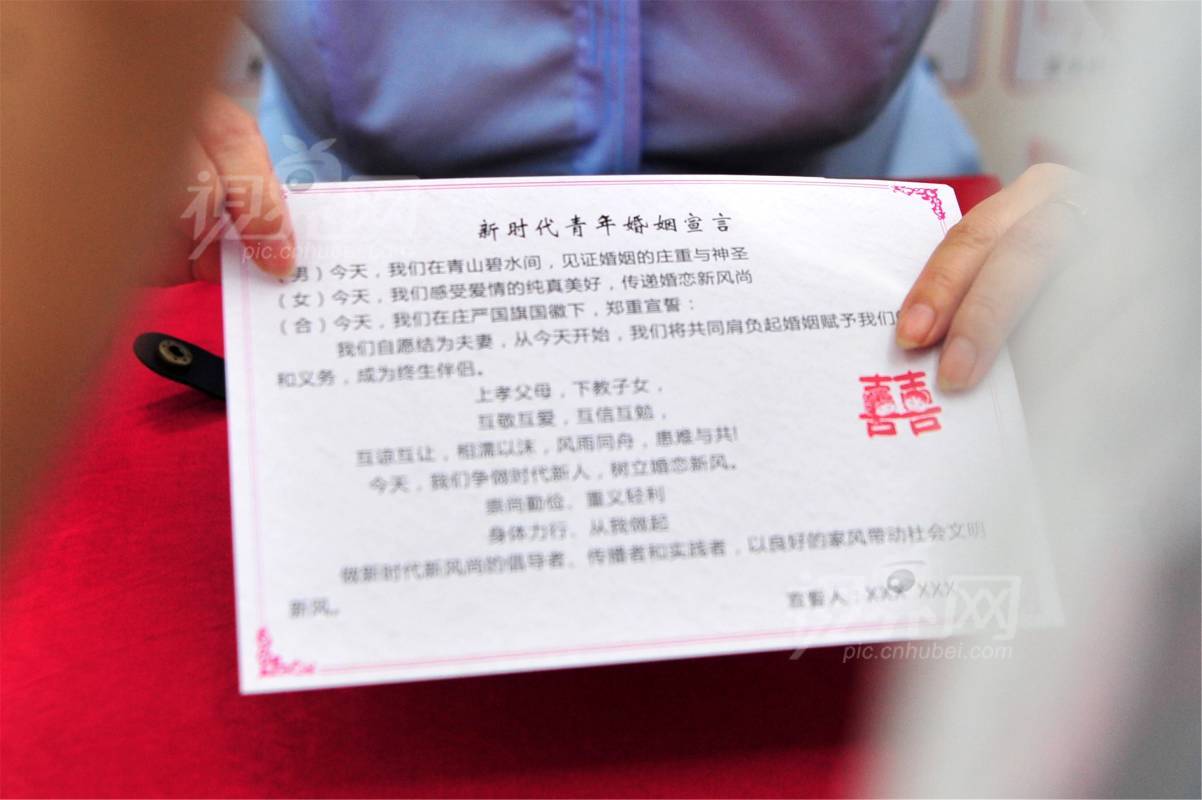 新时代青年婚姻宣言
（男）今天，我们在青山碧水间，见证婚姻的庄重与神圣
（女）今天，我们感受爱情的纯真美好，传递婚恋新风尚
（合）今天，我们在庄严国旗国徽下，郑重宣誓：
我们自愿结为夫妻，从今天开始，我们将共同肩负起婚姻赋予我们
和义务，成为终生伴侣。
上孝父母，下教子女，
互敬互爱，互信互勉，
互谅互让，相濡以沫，风雨同舟，患难与共!
今天，我们争做时代新人，树立婚恋新风。
崇尚勤俭、重义轻利
身体力行、从我做起
做新时代新风尚的倡导者、传播者和实践者，以良好的家风带动社会文明
新风。
宣誓人：XXX XXX
囍
pic.cnhubei.com
pic.cnhubei.com